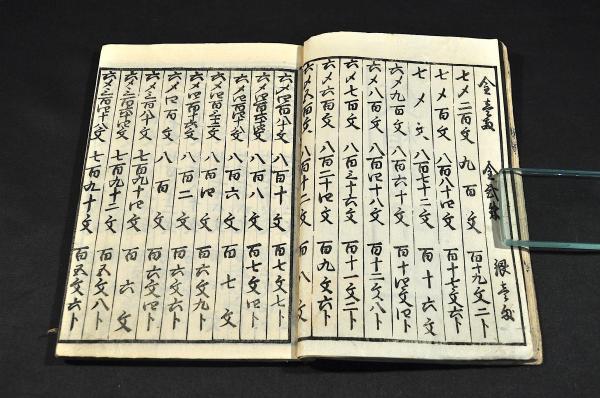 金壱両 金弐朱 銀壱匁
七メ二百文 九百文 百十九文二ト
七メ百文 八百八十四文 百十七文六ト
七メ文 八百七十二文 百十六文
六メ九百文 八百六十文 百十四文四ト
六メ八百文 八百四十八文 百十二文八ト
六メ七百文 八百三十六文 百十一文二ト
六メ六百文 八百二十四文 百九文六ト
六メ五百文 八百十二文 百八文
六メ四百八十文 八百十文 百七文七ト
六メ四百六十四文 八百八文 百七文四ト
六メ四百四十八文 八百六文 百七文
六メ四百三十二文 八百四文 百六文九ト
六メ四百十六文 八百二文 百六文六ト
六メ四百文 八百文 百六文四ト
六メ三百八十文 七百九十四文 百六文
六メ三百六十四文 七百九十二文 百五文八ト
六メ三百四十八文 七百九十文 百五文六ト